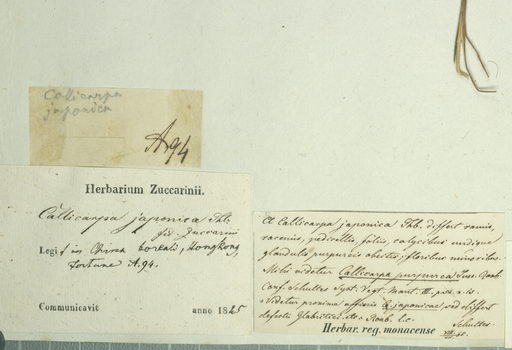 Callicarpa
japonica
A. 94
Herbarium Zuccarinii.
Callicarpa japonica Thb.
fid. Zuccarini
Legi in China boreali, Hongkong,
Fortune A. 94.
Communicavit anno 1845
A Callicarpa japonica Thb. differt ramis,
racemis, pedicellis, foliis, calycibus undique
glandulis purpureis obsitis, floribus minoribus.
Mihi videtur Callicarpa purpurea Juss. Roxb.
Conf. Schultes Syst. Veget. Mant. III.
Videtur proxime affinis C. japonicae, sed differt
defectu Roxb. l. c.
Schultes
Herbar. reg. monacense